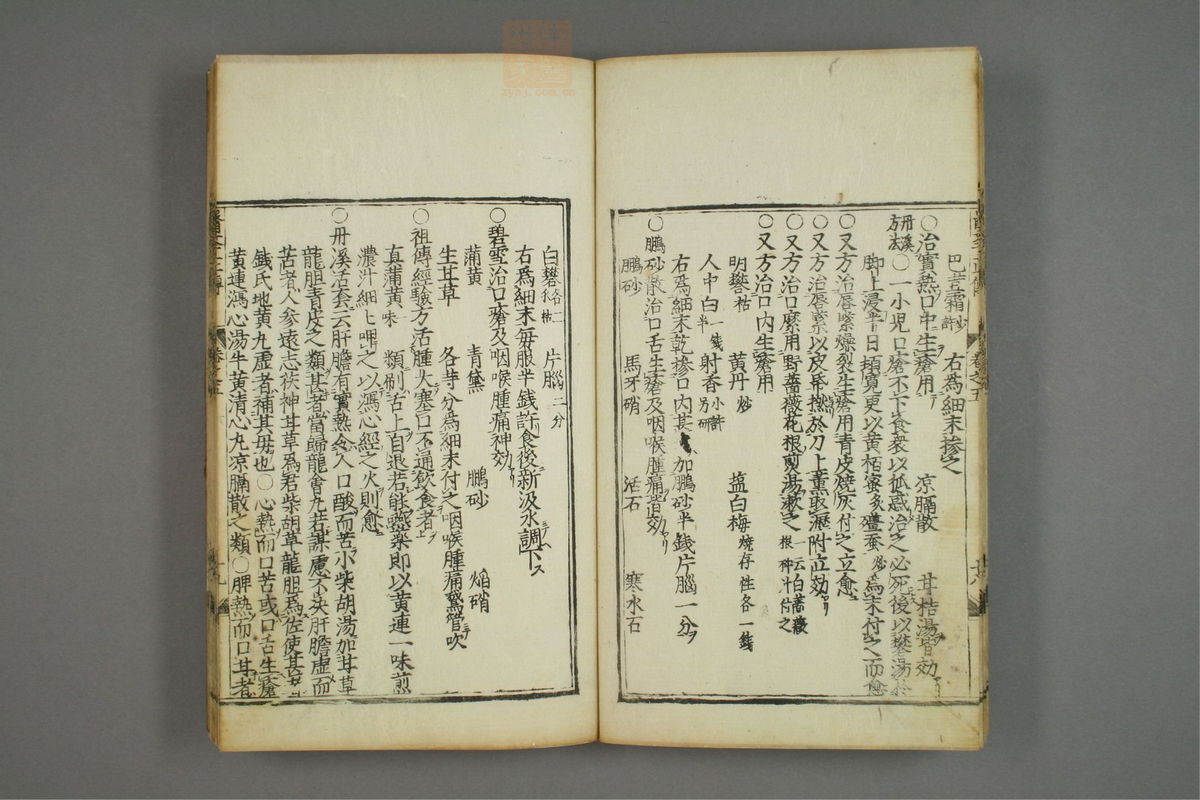 巴豆霜少許　右爲細末摻之
〇治實熱口中生瘡用　凉膈散　甘桔湯皆効
丹溪方法〇一小児口瘡不下食衆以狐惑治之必死後以礬湯於
脚上浸半日頓寛更以黄栢蜜炙殭蚕炒爲末付之而愈
〇又方治唇緊燥裂生瘡用青皮燒灰付之立愈
〇又方治唇緊以皮帛㸐於刀上薫取瀝附立効
〇又方治口糜用野薔薇花根煎湯漱之一云白薔薇根神汁付之
〇又方治口内生瘡用
明礬枯　黄丹炒　塩白梅燒存性各一錢
人中白一錢半　射香小許另研
右爲細末乾摻口内甚　加鵬砂半錢片腦一分
〇鵬砂散治口舌生瘡及咽喉腫痛皆効
鵬砂　馬牙硝　活石　寒水石
白礬各二　枯　片腦二分
右爲細末毎服半錢許食後新汲水調下
〇碧雪治口瘡及咽喉腫痛神効
蒲黄　青黛　鵬砂　焔硝
生甘草　各等分爲細末付之咽喉腫痛鵞管吹
〇祖傳經驗方活腫大塞口不通飲食者
真蒲黄一味　頻刷舌上自退若能嚥藥即以黄連一味煎
濃汁細々呷之以瀉心經之火則愈
〇丹溪活套云肝膽有實熱令人口酸而苦小柴胡湯加甘草
龍胆青皮之類甚者當歸龍會丸若謀慮不决肝膽虚而
苦者人參遠志茯神甘草爲君柴胡草龍胆爲佐使甚
錢氏地黄丸虚者補其母也〇心熱而口苦或口舌生瘡
黄連瀉心湯牛黄清心丸凉膈散之類〇脾熱而口甘者